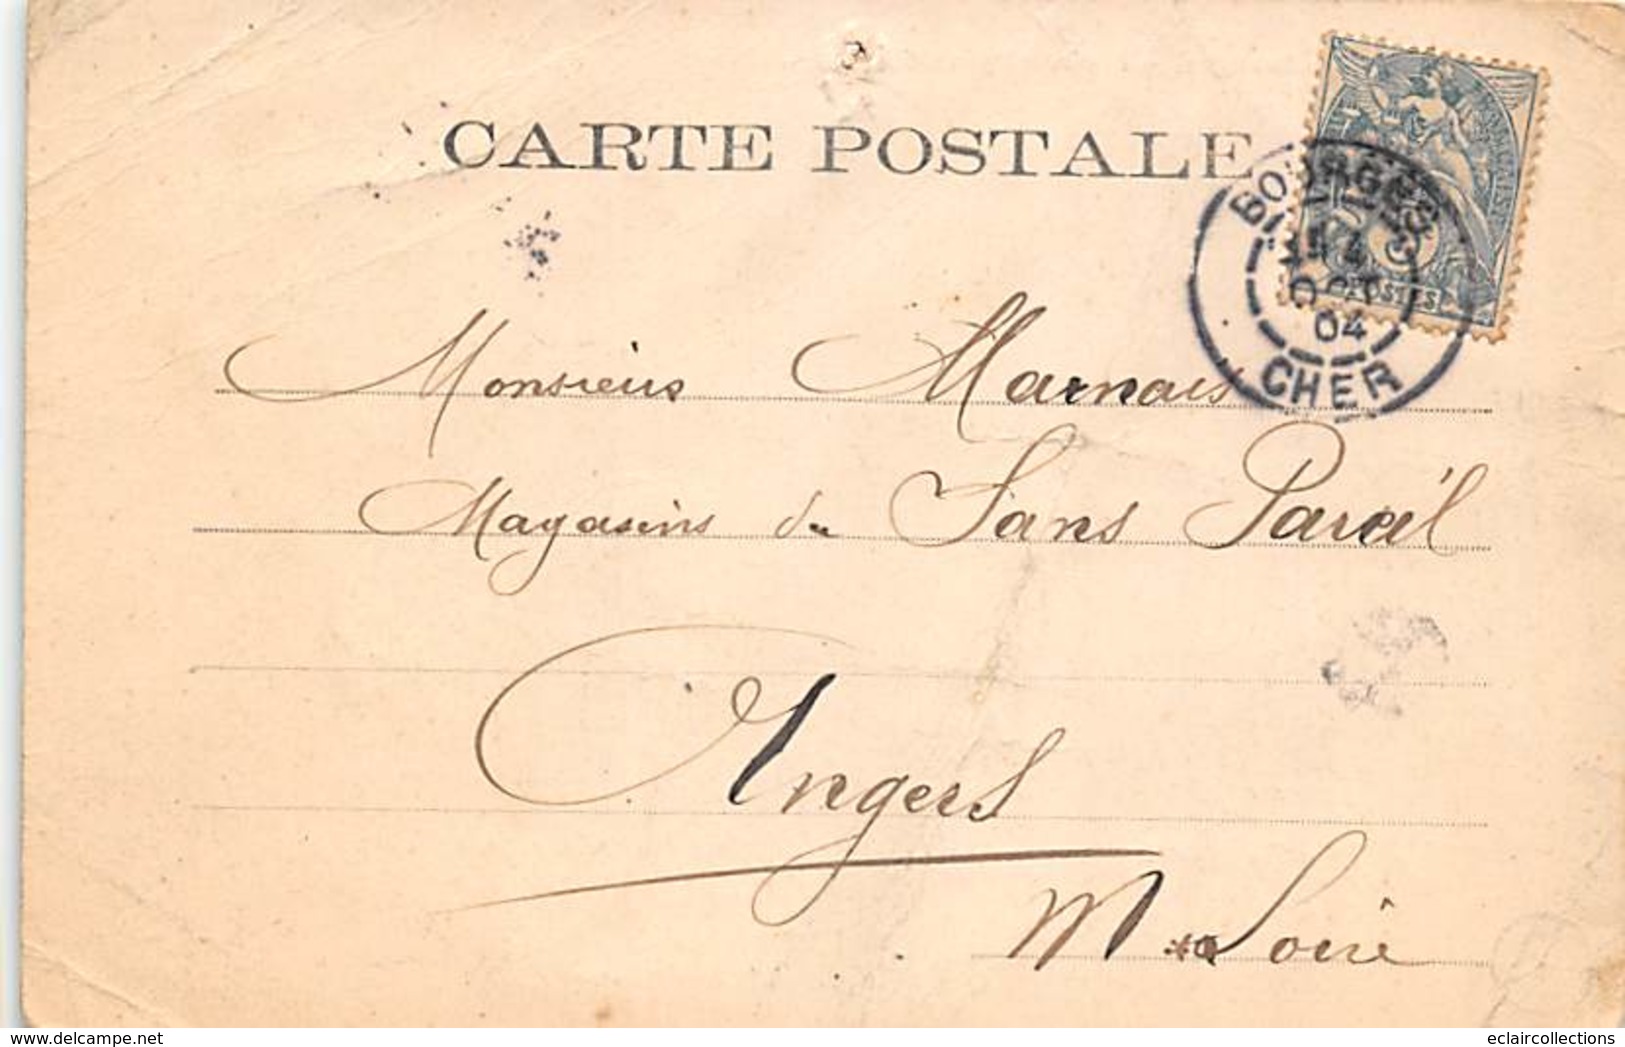 CARTE POSTALE
BOURGES
OCT
04
CHER
5
POSTES
Monsieur Marnais
Magasins du Sans Pareil
Angers
M * Loire
www.delcampe.net
eclaircollections